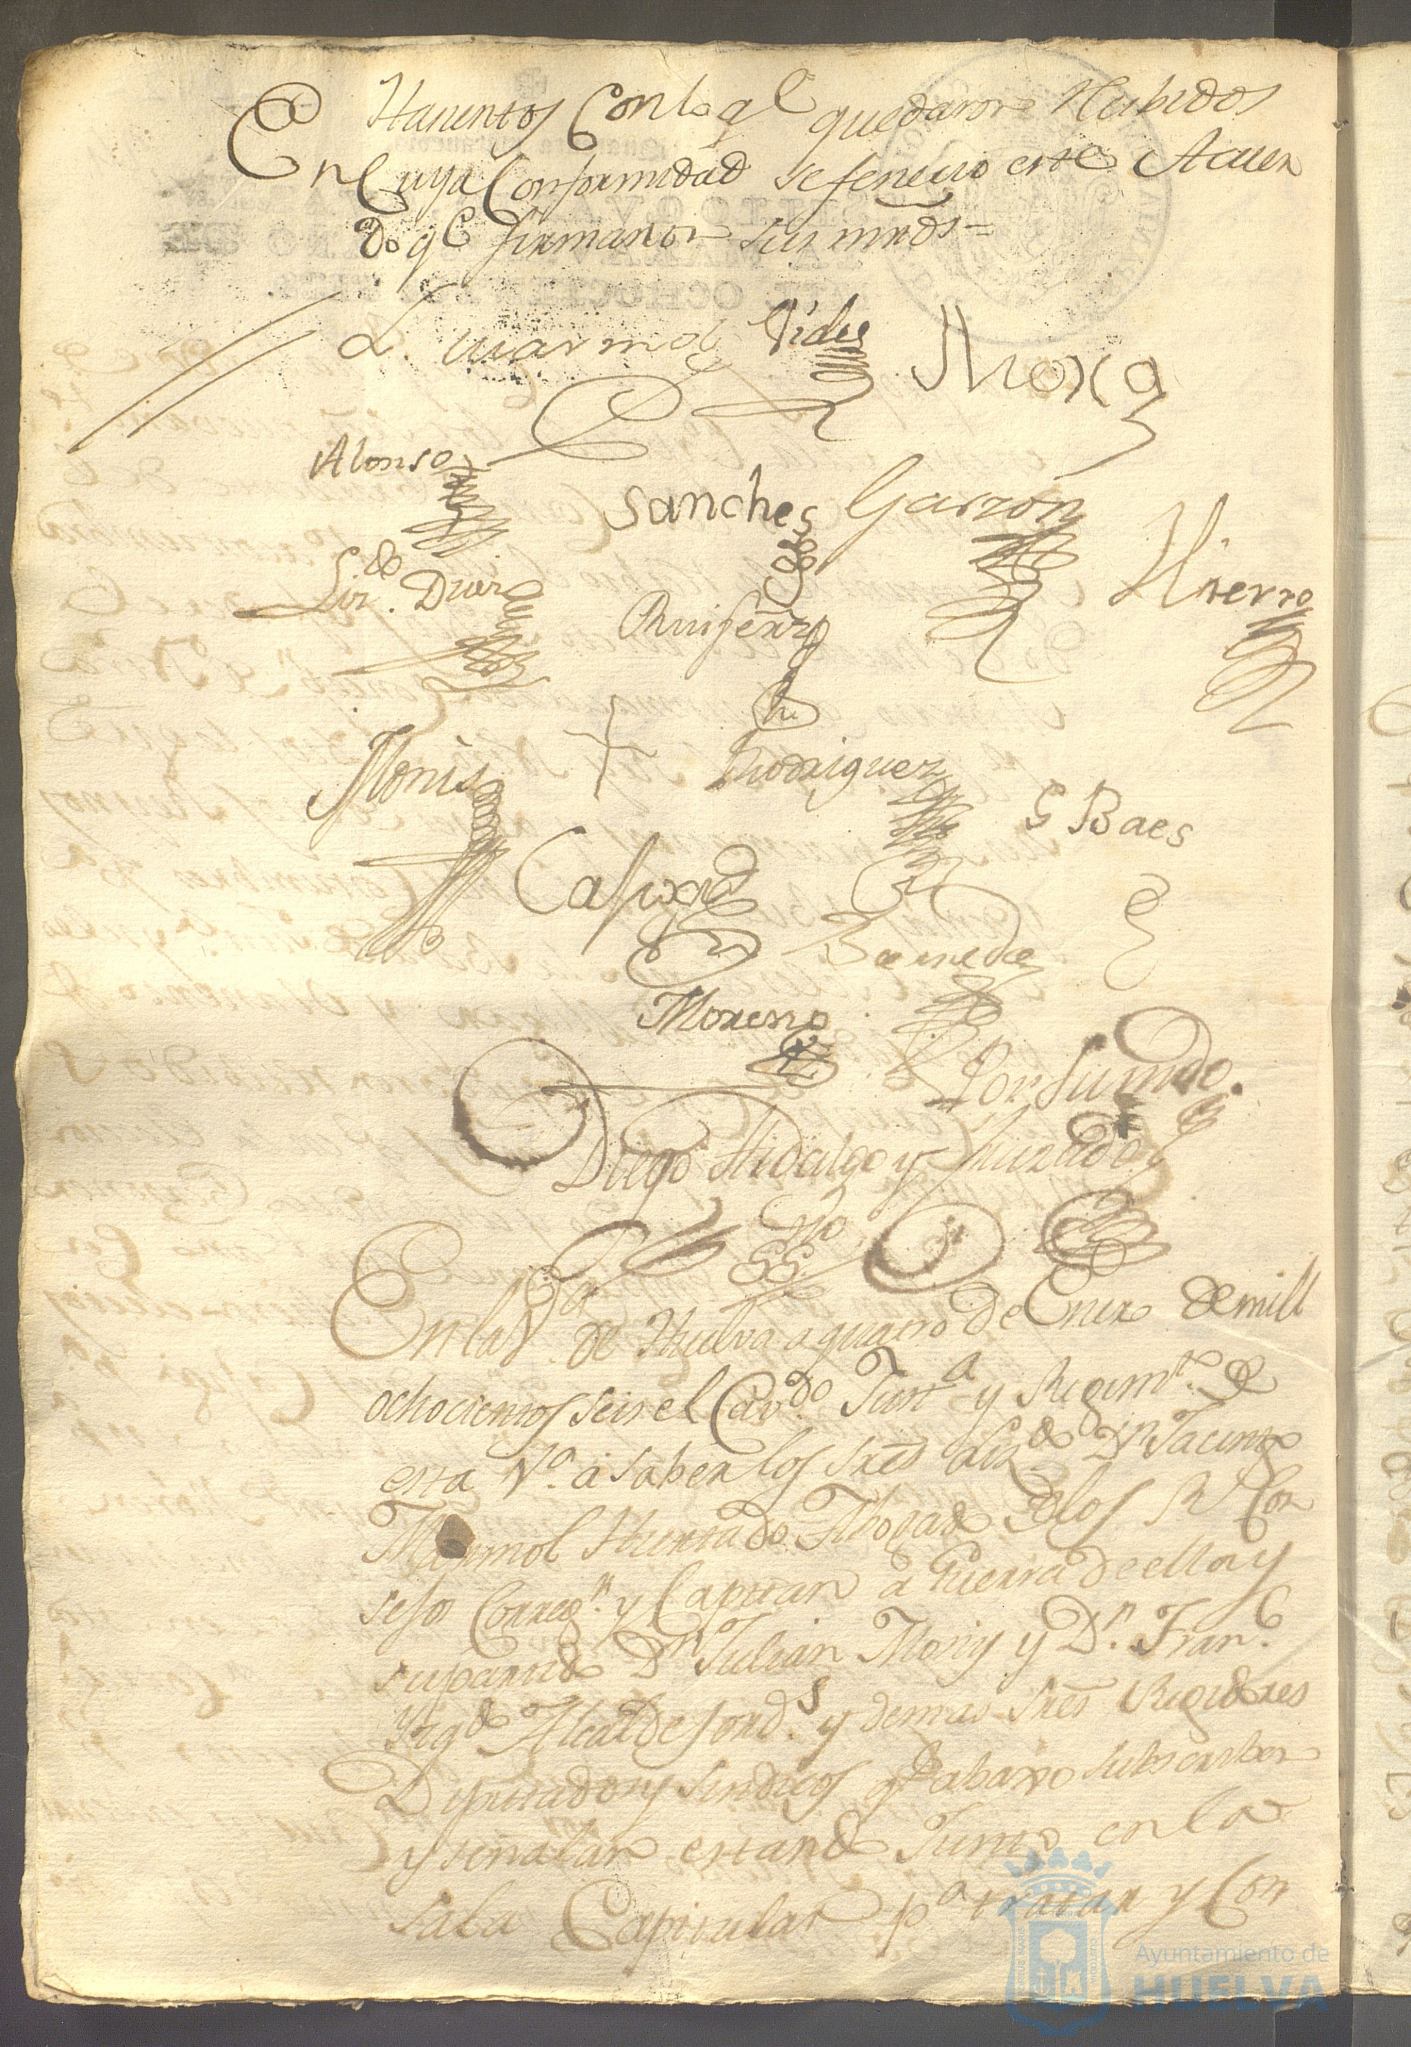 Havientos Con lo q.e quedaron Recibidos
En Cuya Conformidad se fenecio este Acuer
do q.e firmaron sus mrds=
L. Marmol Vides Mora
Alonso Sanches Garzon Hierro
Liz.do Diaz Ruifernz
Monis Rodriguez S Baes
Moreno
Por su mdo.
Diego Hidalgo y Jurado
En la V.a de Huelva a quatro de Enero de mill
ochocientos seis el Cav.do Just.a y Regim.to de
esta V.a a saber los Sres Liz.do D.n Jacinto
Marmol Hurtado Abogado de los R.s Con
sejos Correg.r y Capitan a Guerra de ella y
su partido D.n Julian Monis y D.n Fran.co
Alcaldes ord.s y demas Sres Regidores
Diputados y Sindicos q.e abaxo subscriben
y señalan estando Juntos en la
Sala Capitular p.a tratar y Con
Ayuntamiento de
HUELVA